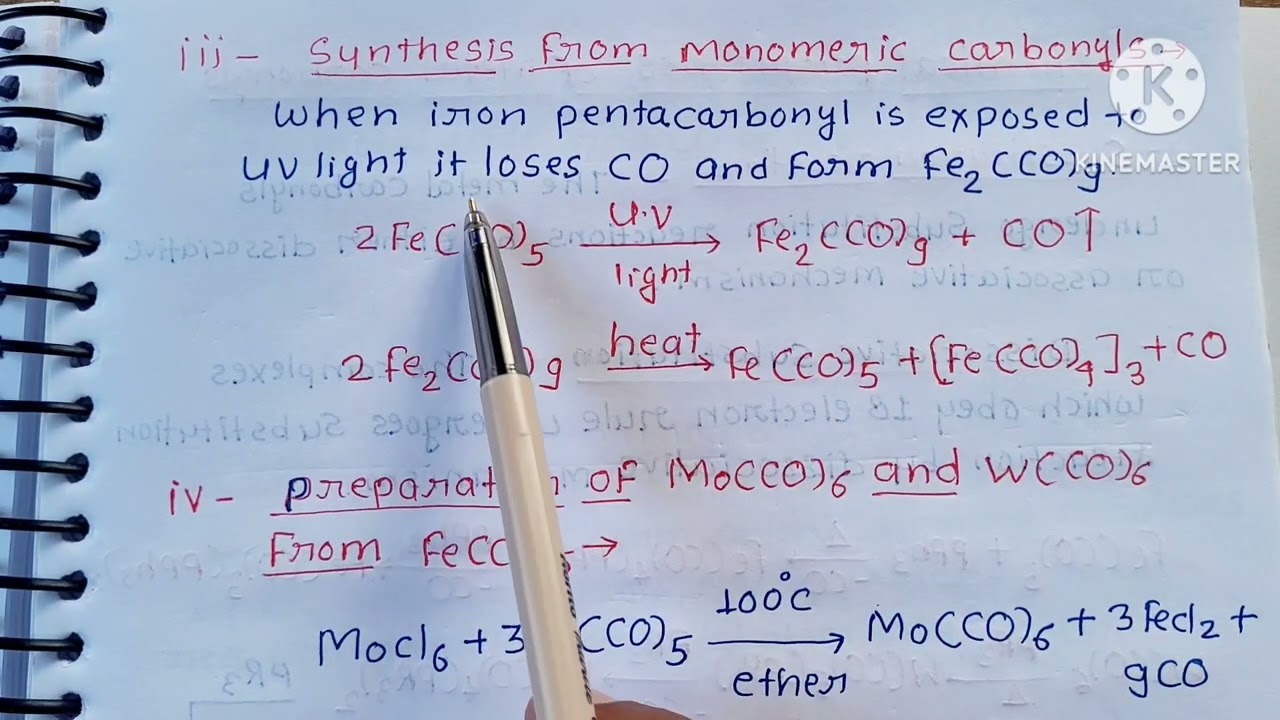 iii- Synthesis from monomeric carbonyls→
When iron pentacarbonyl is exposed to
UV light it loses CO and form Fe₂(CO)9.
2Fe(CO)₅ U.V light → Fe₂(CO)9 + CO↑
2Fe₂(CO)9 heat → Fe(CO)₅ + [Fe(CO)₄]₃ + CO
iv- preparation of Mo(CO)₆ and W(CO)₆
From Fe(CO)₅ →
MoCl₆ + 3 (CO)₅ 100°C ether → Mo(CO)₆ + 3FeCl₂ +
9CO
K
KINEMASTER